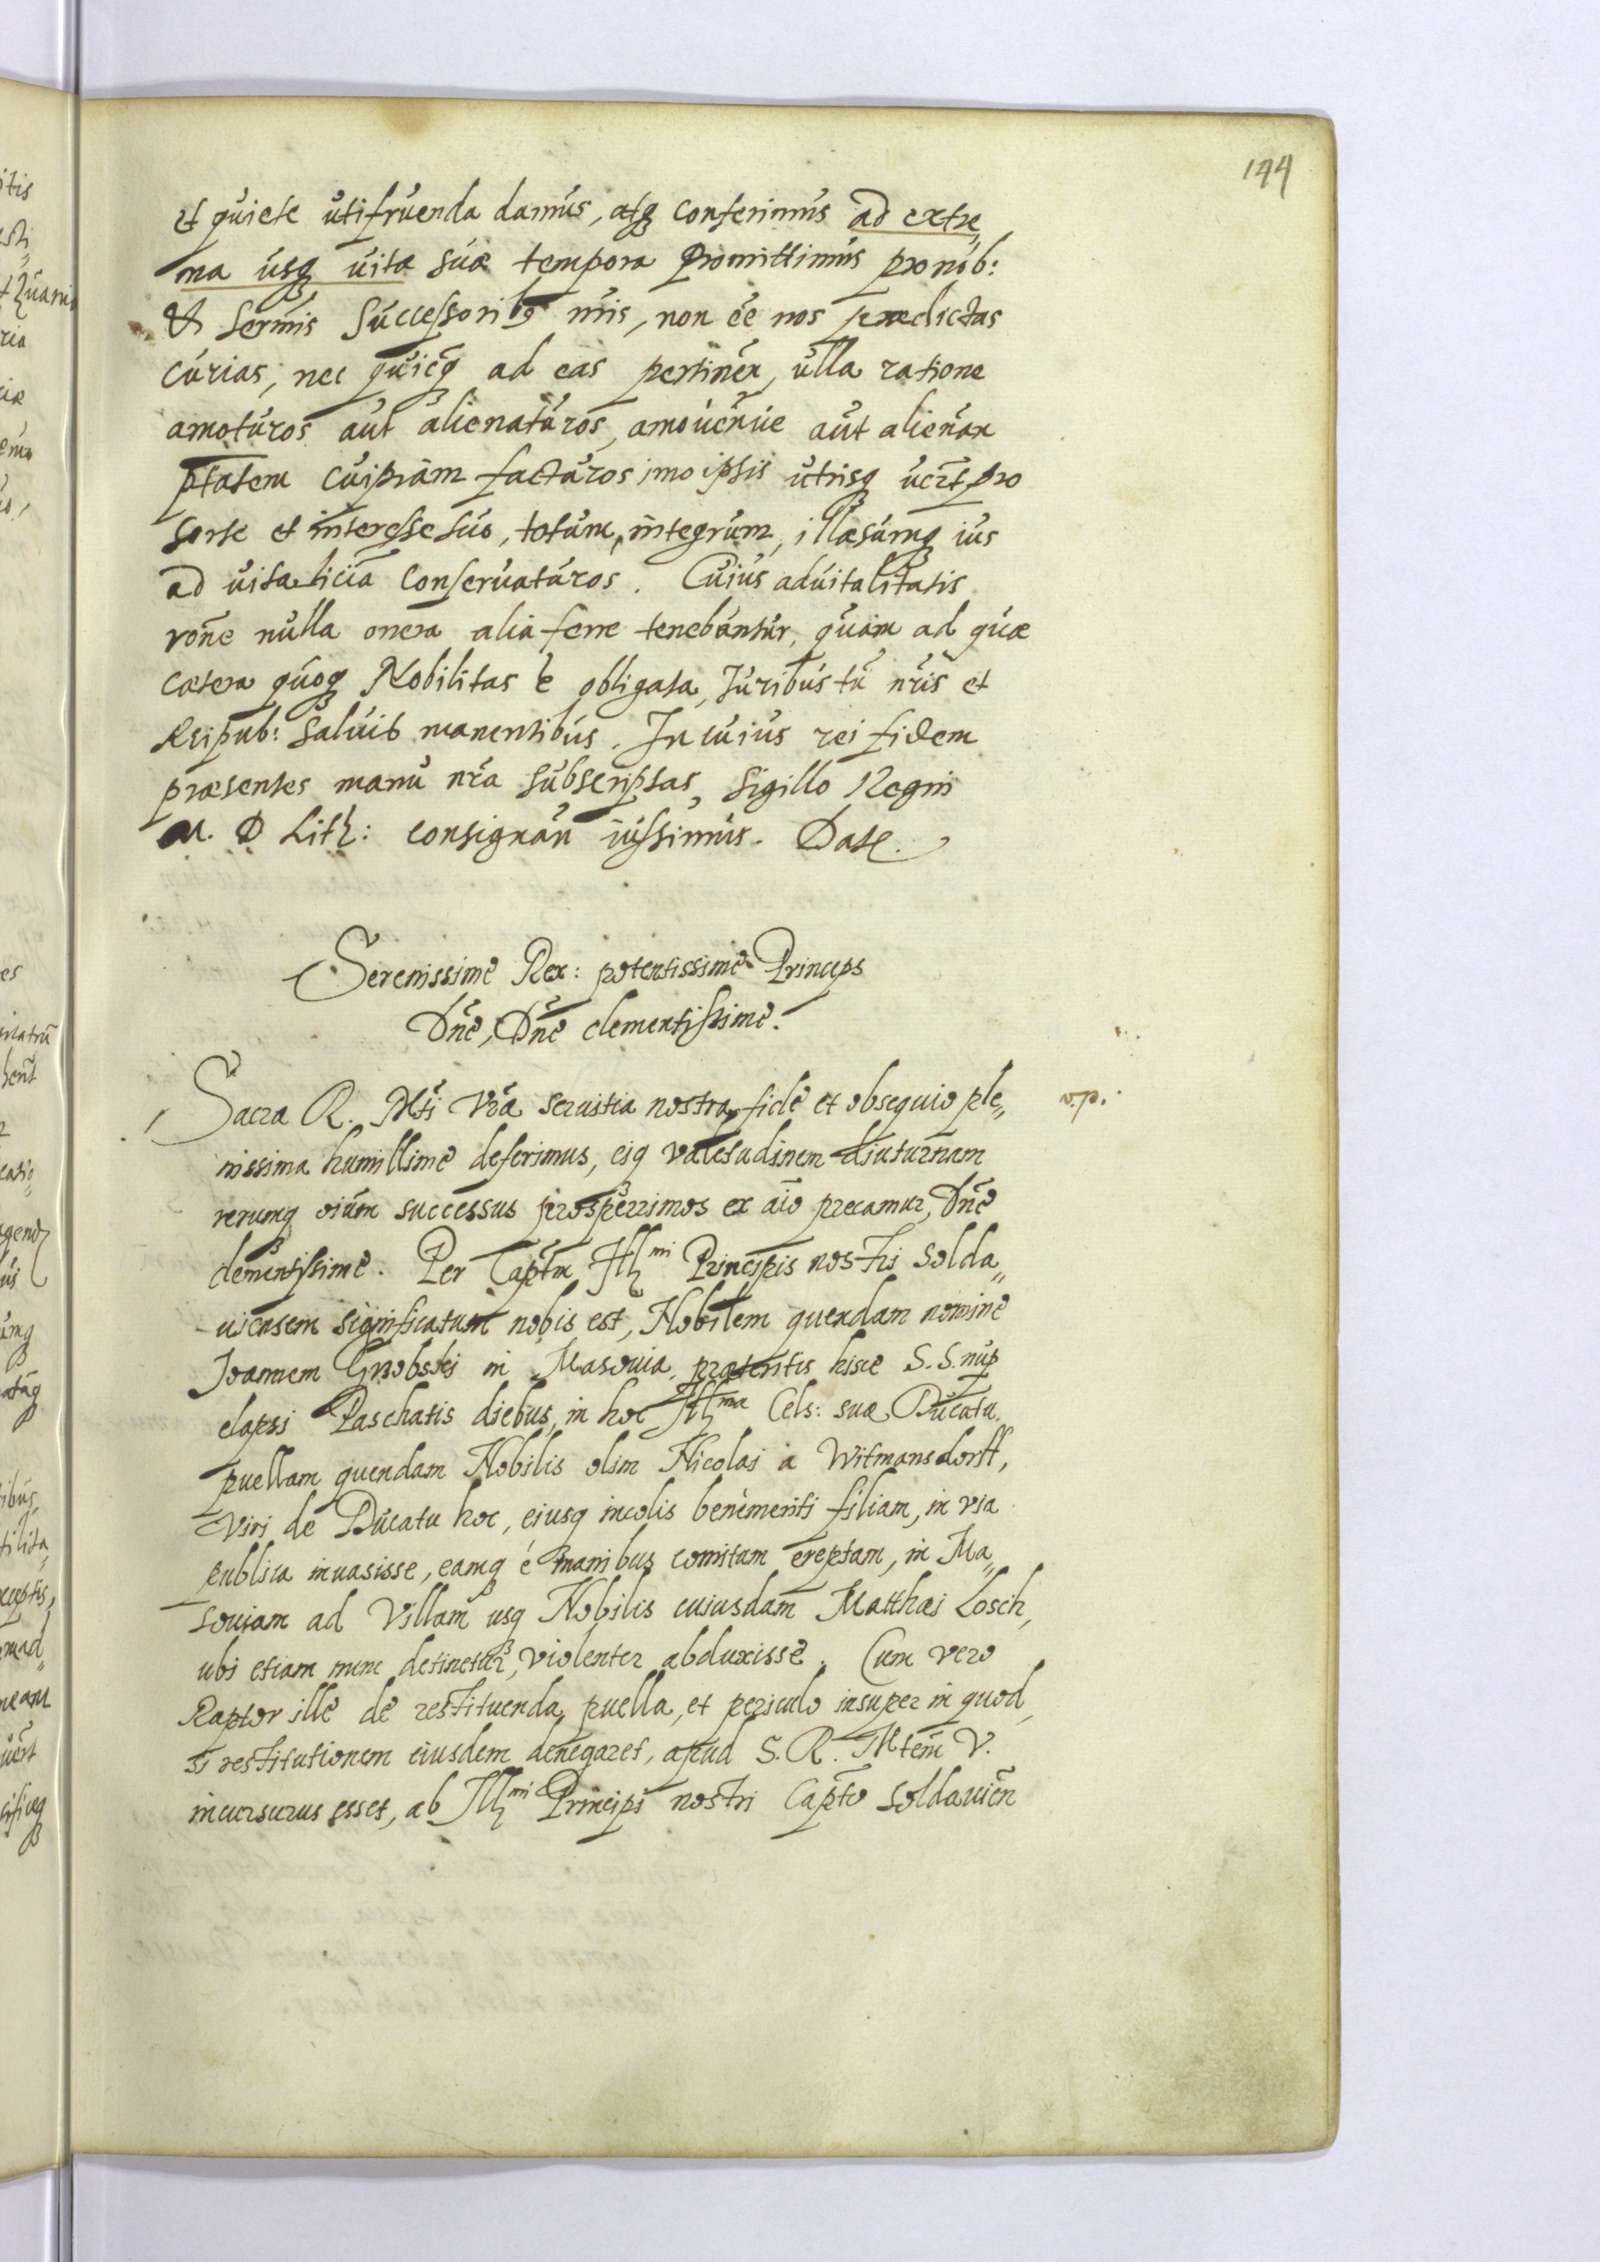 144
et quiete utifruenda damus, atq conferimus ad extre„
ma usq vitæ suæ tempora Promittimus pro nob:
Et Sermis Successoribq nris, non eē nos prædictas
curias, nec quicq ad eas pertinen, ulla ratione
amoturos aut alienaturos, amovenve aut alienan
ptatem cuipiam facturos imo ipsis utrisq
sorte et interesse suo, totum, integrum, illæsumq ius
ad vitaliciā conservaturos. Cuius advitalitatis
rōne nulla onera alia ferre tenebuntur, quam ad quæ
cætera quoq Nobilitas ē obligata, Juribus tn̄ nr̄is et
Reipub: salvis manentibus. In cuius rei fidem
præsentes manu nr̄a subscriptas, sigillo Regni
M. D Lith: consignari iussimus. Dat.
Serenissime Rex: potentissime Princeps
Dn̄e, Dn̄e clementissime.
Sacra R. Mti Vr̄a servitia nostra fide et obsequio ple„
v.p.
nissima humillime deferimus, eiq valetudinem diuturnam
rerumq oīum successus prosperrimos ex aīo precamur, Dn̄e
clementissime. Per Captm̄ Illmi Principis nostri Solda„
viensem significatum nobis est, Nobilem quendam nomine
Joannem Grzobski in Masovia, præteritis hisce S. S. nup
elapsi Paschatis diebus, in hoc Illma Cels: suæ Ducatu
puellam quendam Nobilis olim Nicolai a Witmansdorff,
Viri de Ducatu hoc, eiusq incolis benemeriti filiam, in via
publica invasisse, eamq é manibus comitum ereptam, in Ma„
soviam ad Villam usq Nobilis cuiusdam Matthæi Losch,
ubi etiam nunc detinetur, violenter abduxisse. Cum vero
Raptor ille de restituenda puella, et periculo insuper in quod,
si restitutionem eiusdem denegaret, apud S. R. Mtem̄ V.
incursurus esset, ab Illmi Principi nostri Capto Soldavien